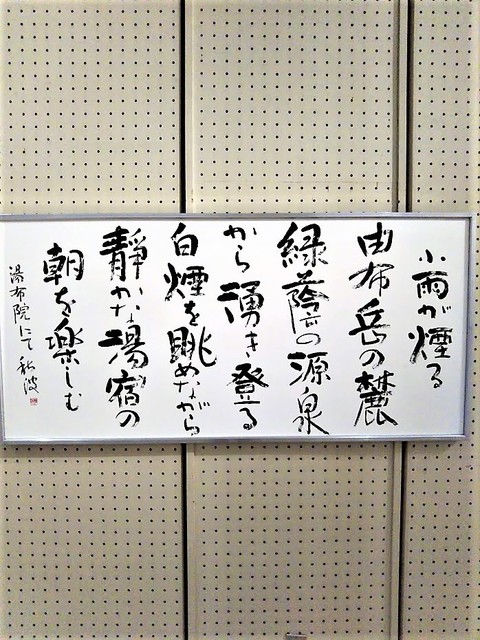 小雨が煙る
由布岳の麓
緑蔭の源泉
から湧き登る
白煙を眺めながら
静かな湯宿の
朝を楽しむ
湯布院にて 秋波